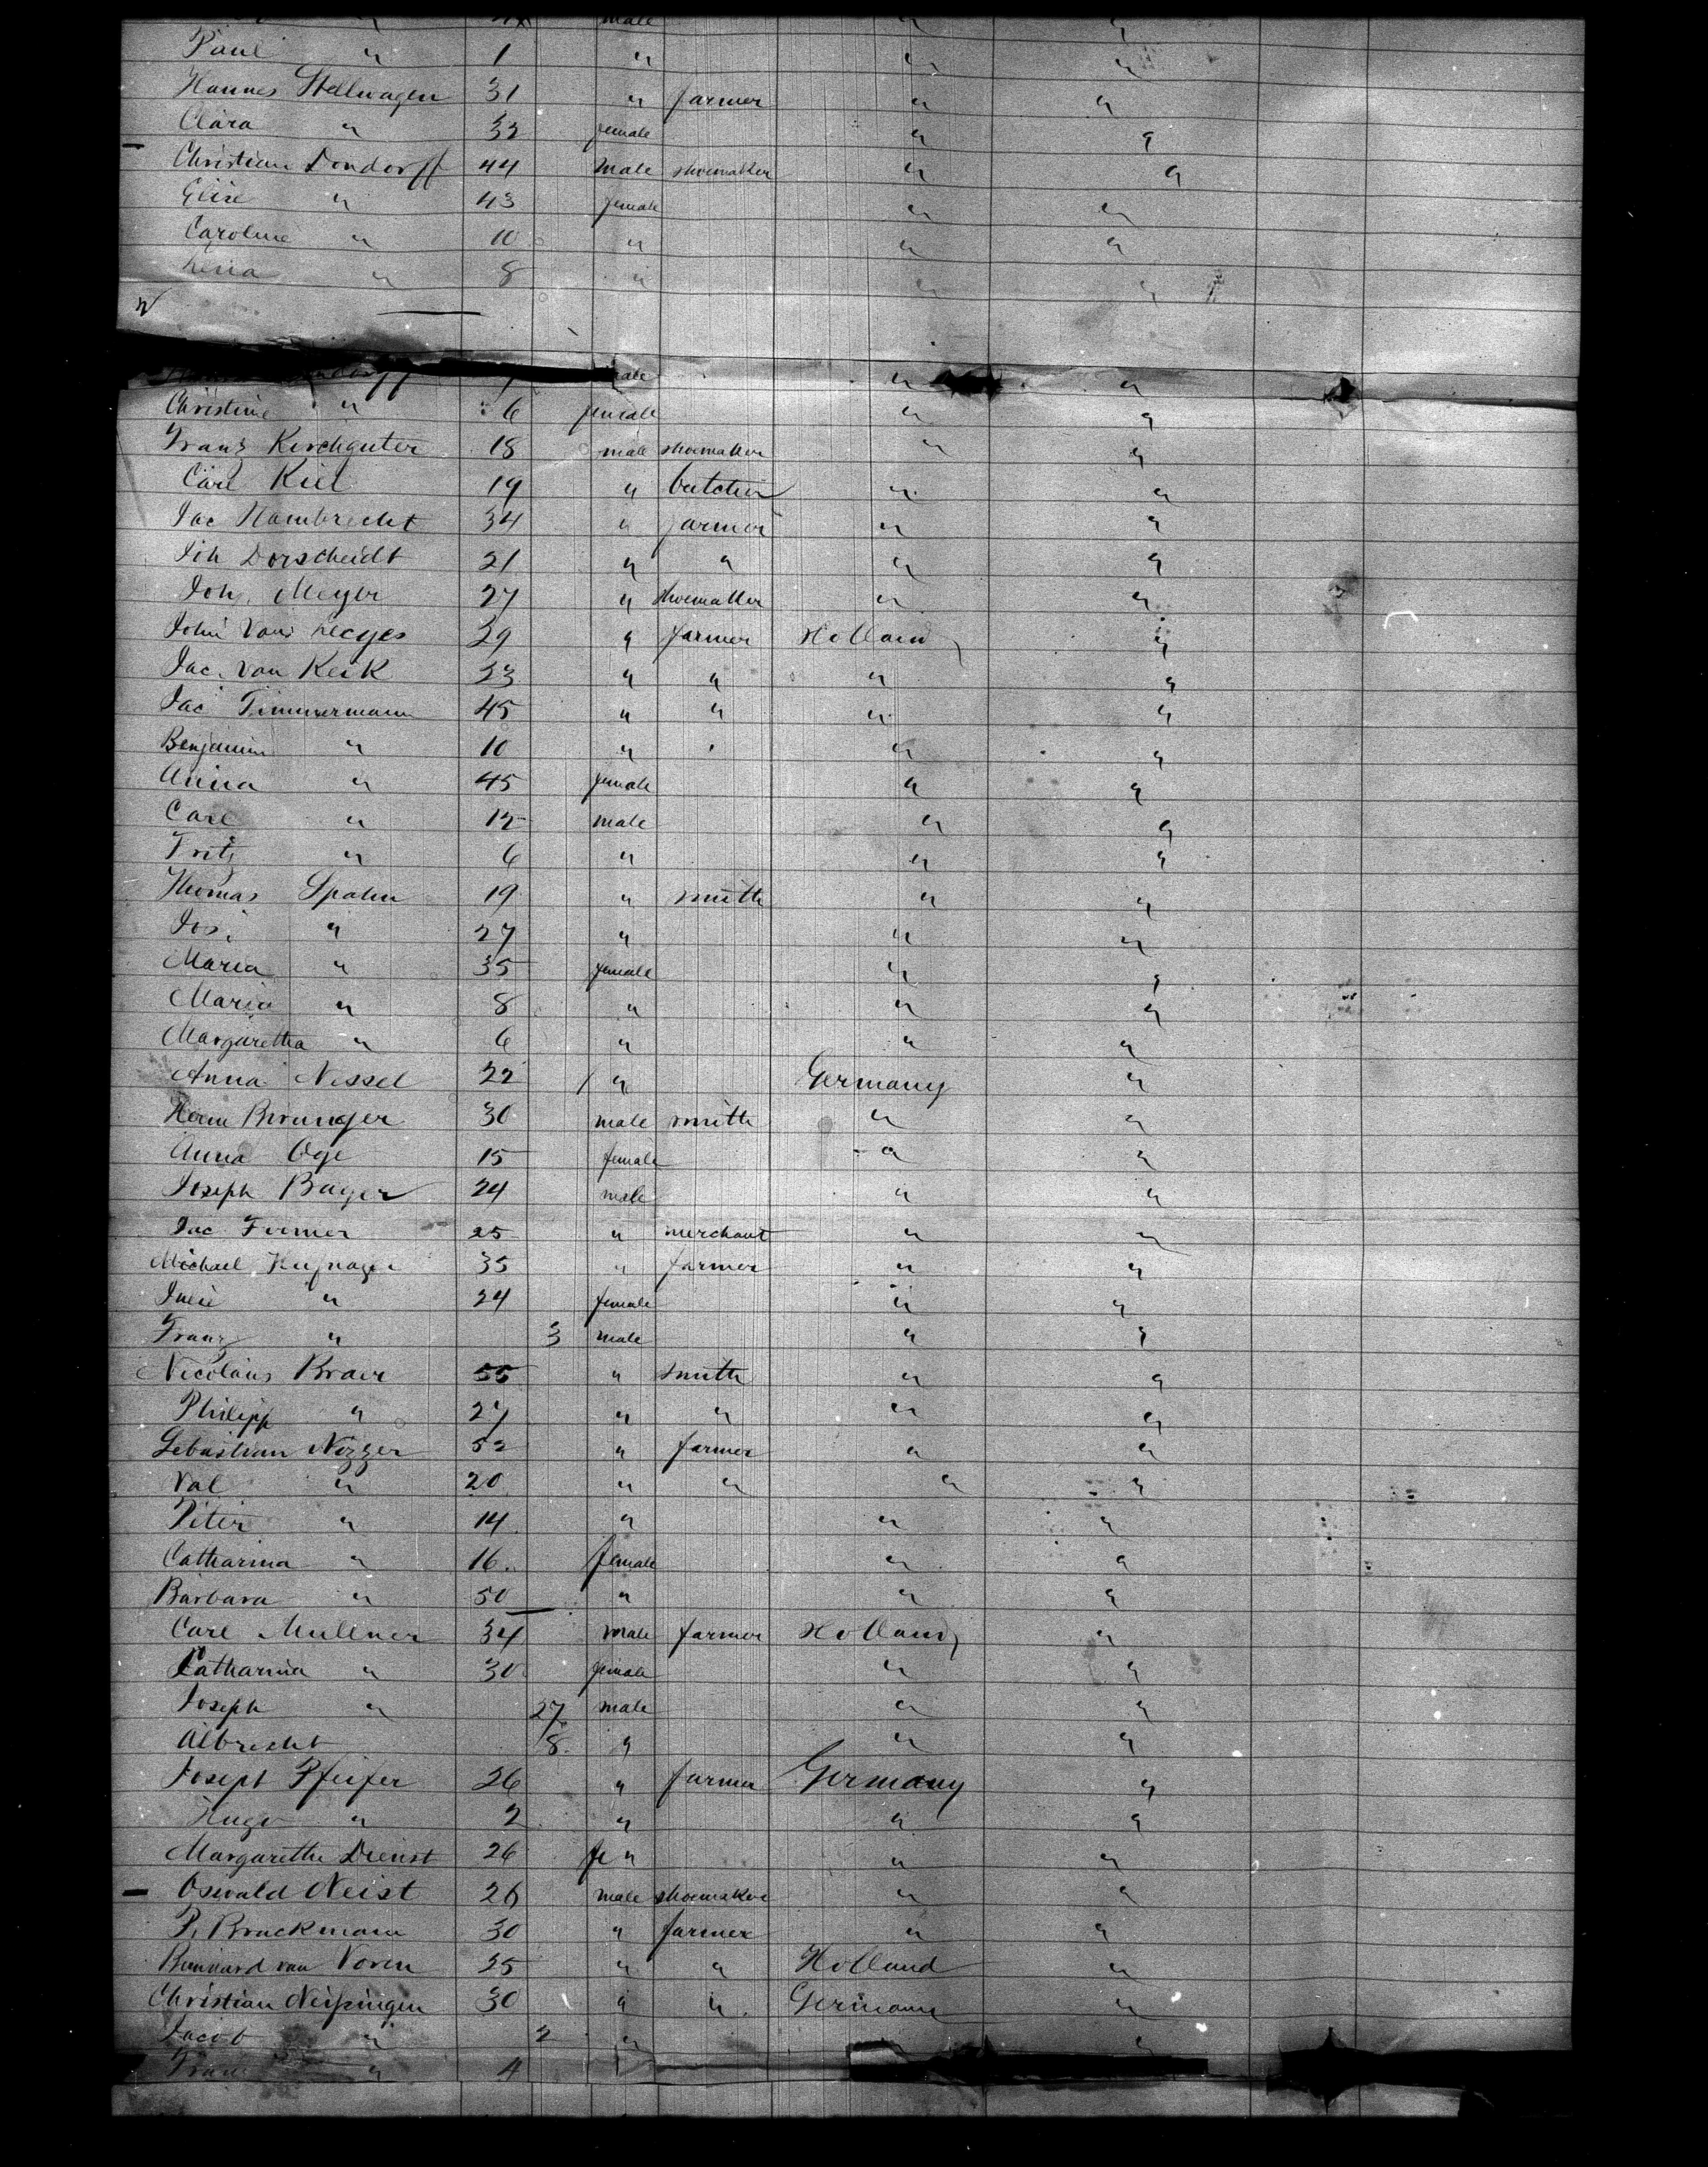 male " "
Paul " 1 " " "
Hannes Stellwagen 31 " farmer " "
Clara " 32 female " "
Christian Dondorff 44 male shoemaker " "
Elise " 43 female " "
Caroline " 10 " " "
Lena " 8 " " "
male " "
Christine " 6 female " "
Franz Kirchguter 18 male shoemaker " "
Carl Kiel 19 " butcher " "
Jac Hambrecht 34 " farmer " "
Joh Dorscheidt 21 " " " "
Joh. Meyer 27 " shoemaker " "
John Van 29 " farmer Holland "
Jac. van Keik 23 " " " "
Jac Timmermann 45 " " " "
Benjamin " 10 " " " "
Anna " 45 female " "
Carl " 12 male " "
Fritz " 6 " " "
Thomas Spahn 19 " smith " "
Jos. " 27 " " "
Maria " 35 female " "
Maria " 8 " " "
Margaretha " 6 " " "
Anna Nessel 22 " Germany "
Herm Brunger 30 male smith " "
Anna Oge 15 female " "
Joseph Bayer 24 male " "
Jac. 25 " merchant " "
Michael 35 " farmer " "
" 24 female " "
Franz " 3 male " "
Nicolaus Braer 55 " smith " "
Philipp " 27 " " " "
Sebastian Nizzer 52 " farmer " "
Val " 20 " " " "
Peter " 14 " " "
Catharina " 16 female " "
Barbara " 50 " " "
Carl Mullener 34 male farmer Holland "
Catharina " 30 female " "
Joseph " 27 male " "
Albrecht 8 " " "
Joseph Pfeifer 26 " farmer Germany "
Hugo " 2 " " "
Margarethe Dienst 26 fe " " "
Oswald Neist 26 male shoemaker " "
P. Brackmann 30 " farmer " "
van Voren 25 " " Holland "
Christian Neissingen 30 " " Germany "
Jacob " 2 " " "
Franz " 4